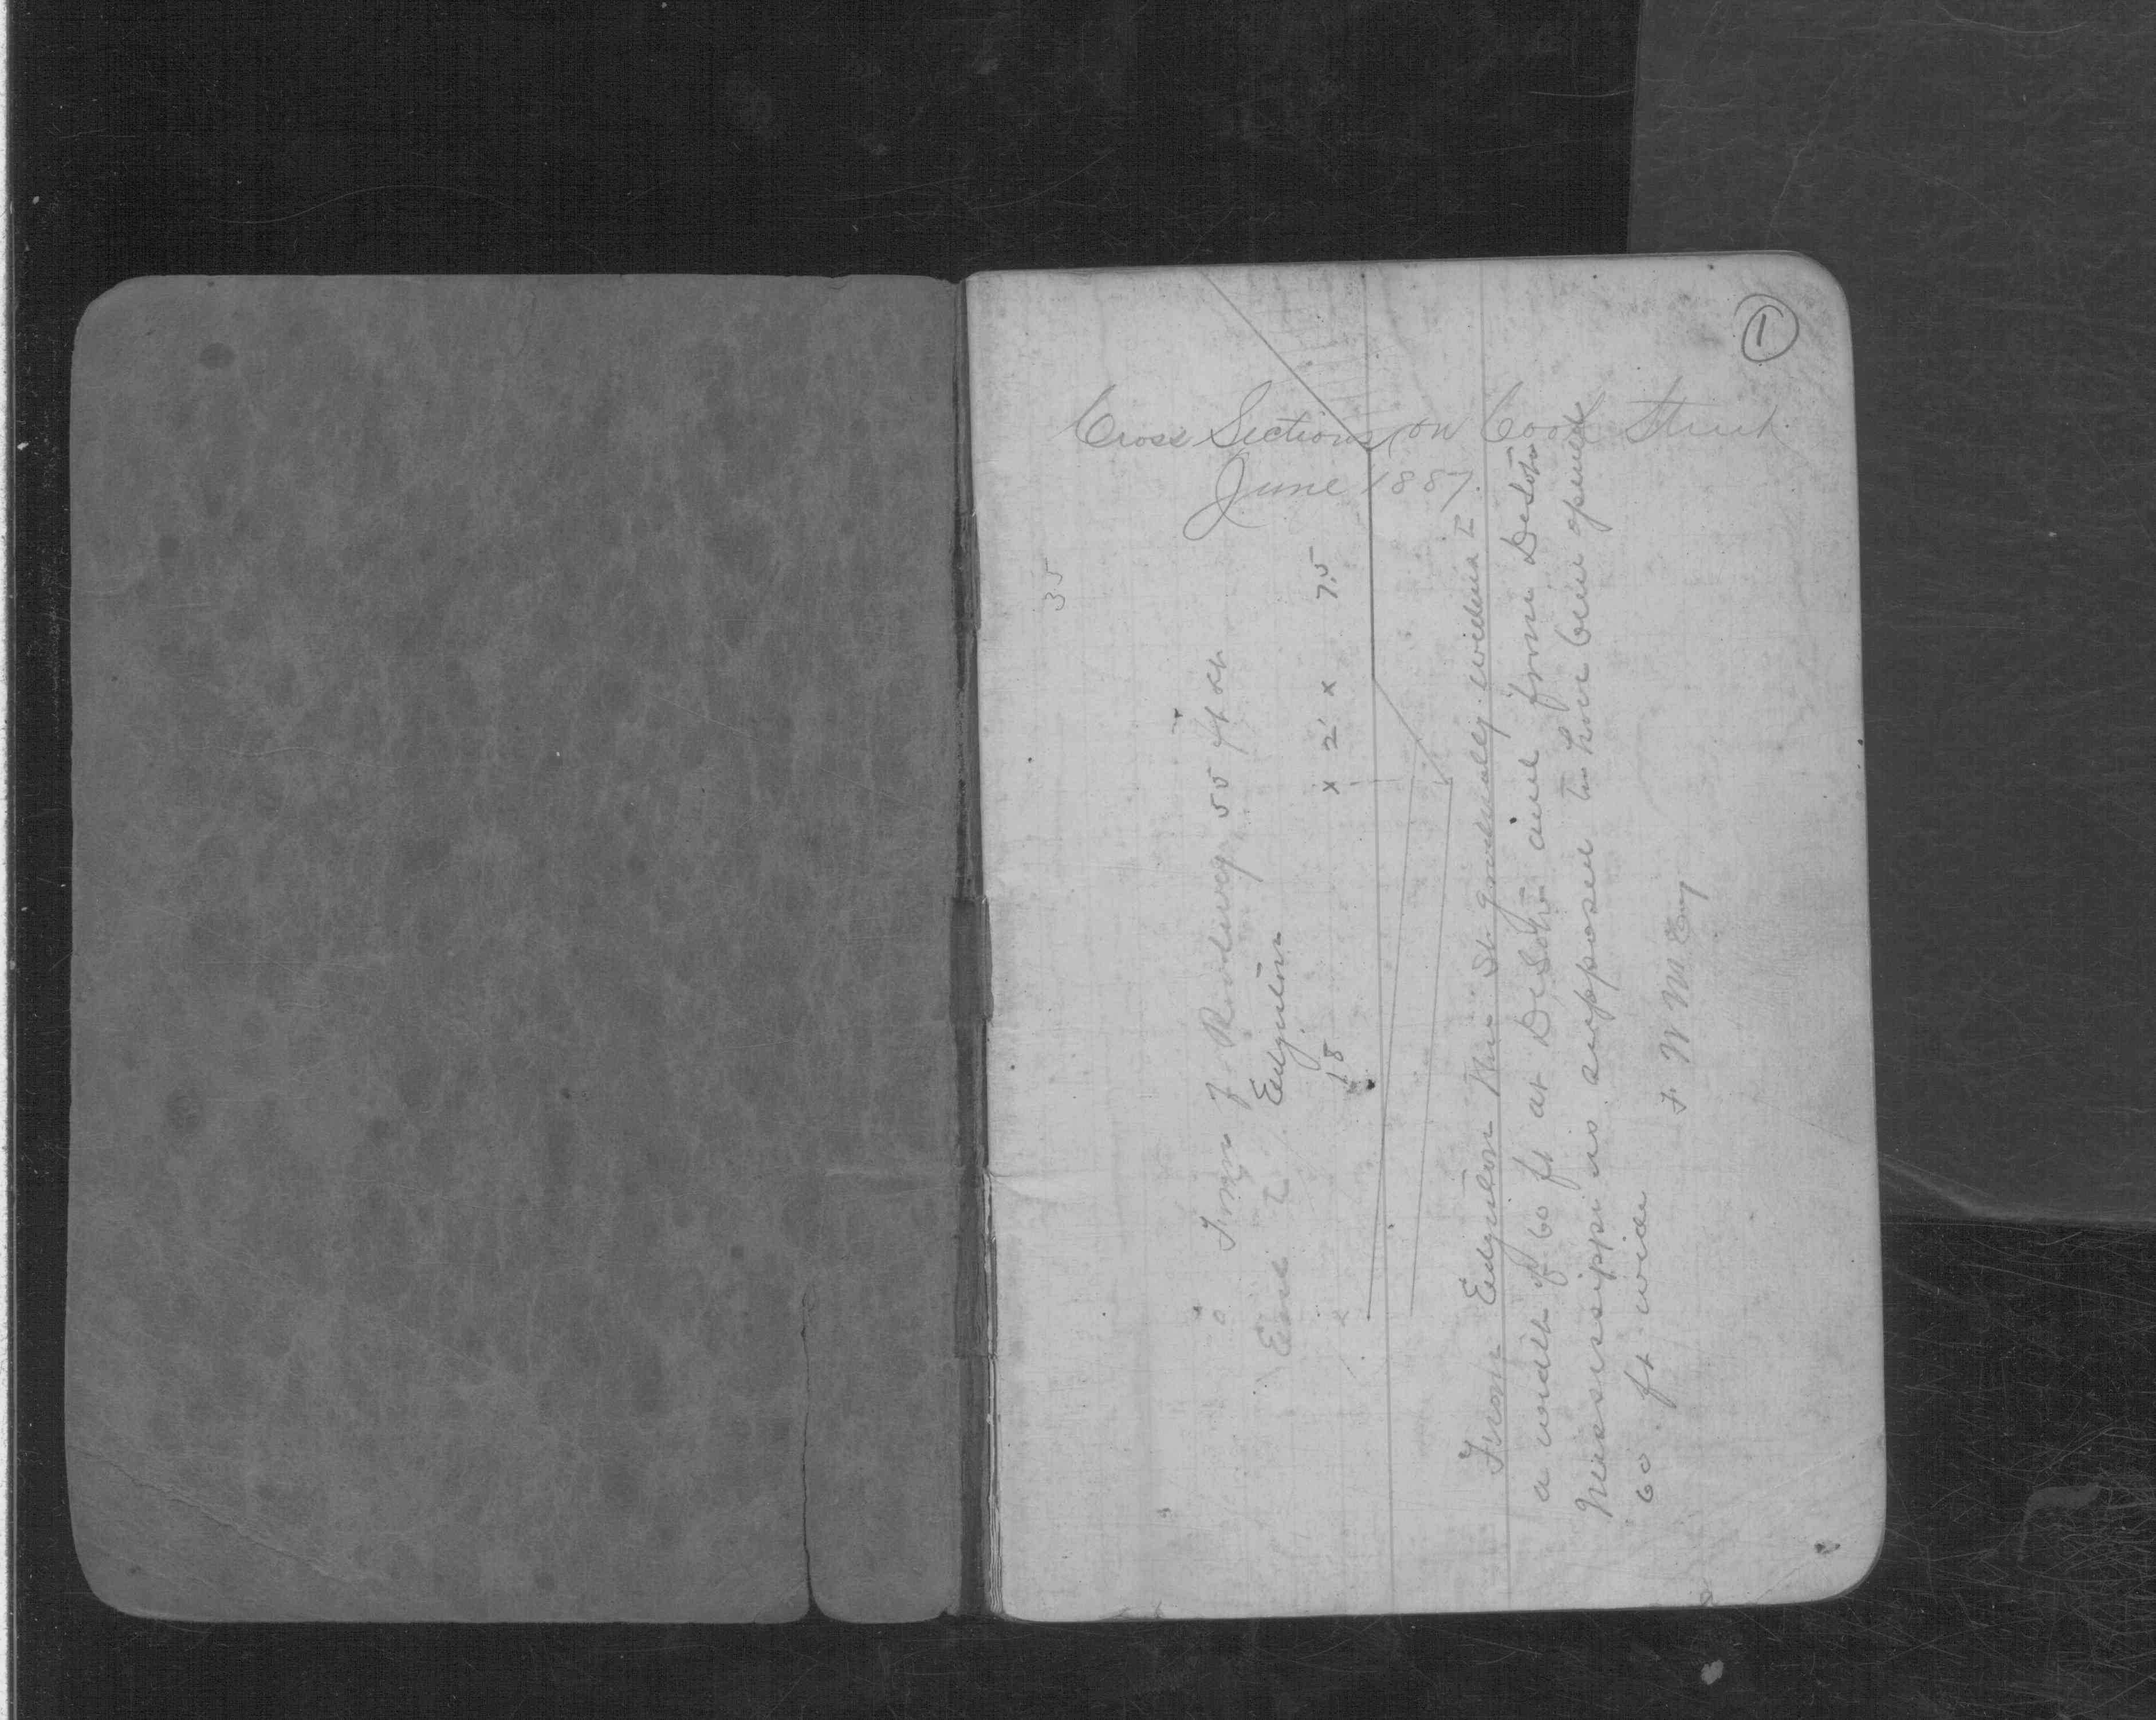 1
Cross Sections on Cook Street
June 1887
35
from Roadway 55 ft
East
Edgerton
18 x 2 x 7.5
From Edgerton the St gradually widens
a width of 60 ft at DeSoto and from DeSoto
Mississippi is supposed to have been opened
60 ft wide